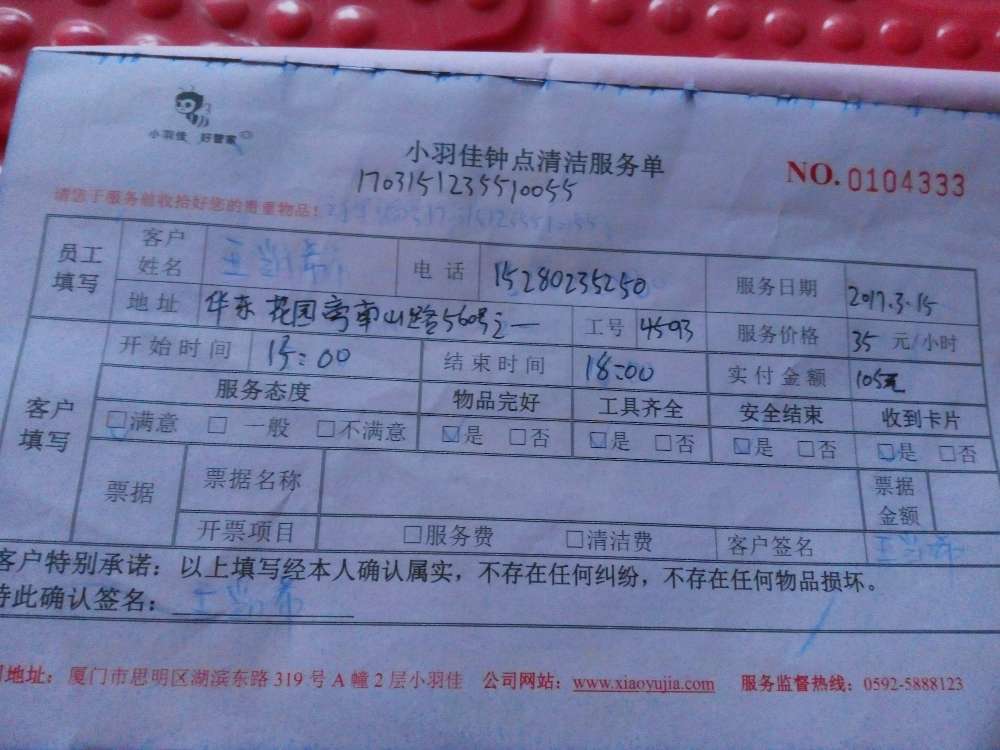 小羽佳 好管家
小羽佳钟点清洁服务单
NO. 0104333
1703151235510055
请您于服务前收拾好您的贵重物品!
员工填写 客户姓名 王 电话 15280235250 服务日期 2017.3.15
地址 华东花园 南山路560号之一 工号 4593 服务价格 35 元/小时
开始时间 15:00 结束时间 18:00 实付金额 105元
客户填写 服务态度 物品完好 工具齐全 安全结束 收到卡片
☑满意 □ 一般 □不满意 ☑是 □否 ☑是 □否 ☑是 □否 ☑是 □否
票据 票据名称 票据金额
开票项目 □服务费 □清洁费 客户签名 王
客户特别承诺：以上填写经本人确认属实，不存在任何纠纷，不存在任何物品损坏。
特此确认签名： 王
司地址： 厦门市思明区湖滨东路 319 号 A 幢 2 层小羽佳 公司网站：www.xiaoyujia.com 服务监督热线：0592-5888123